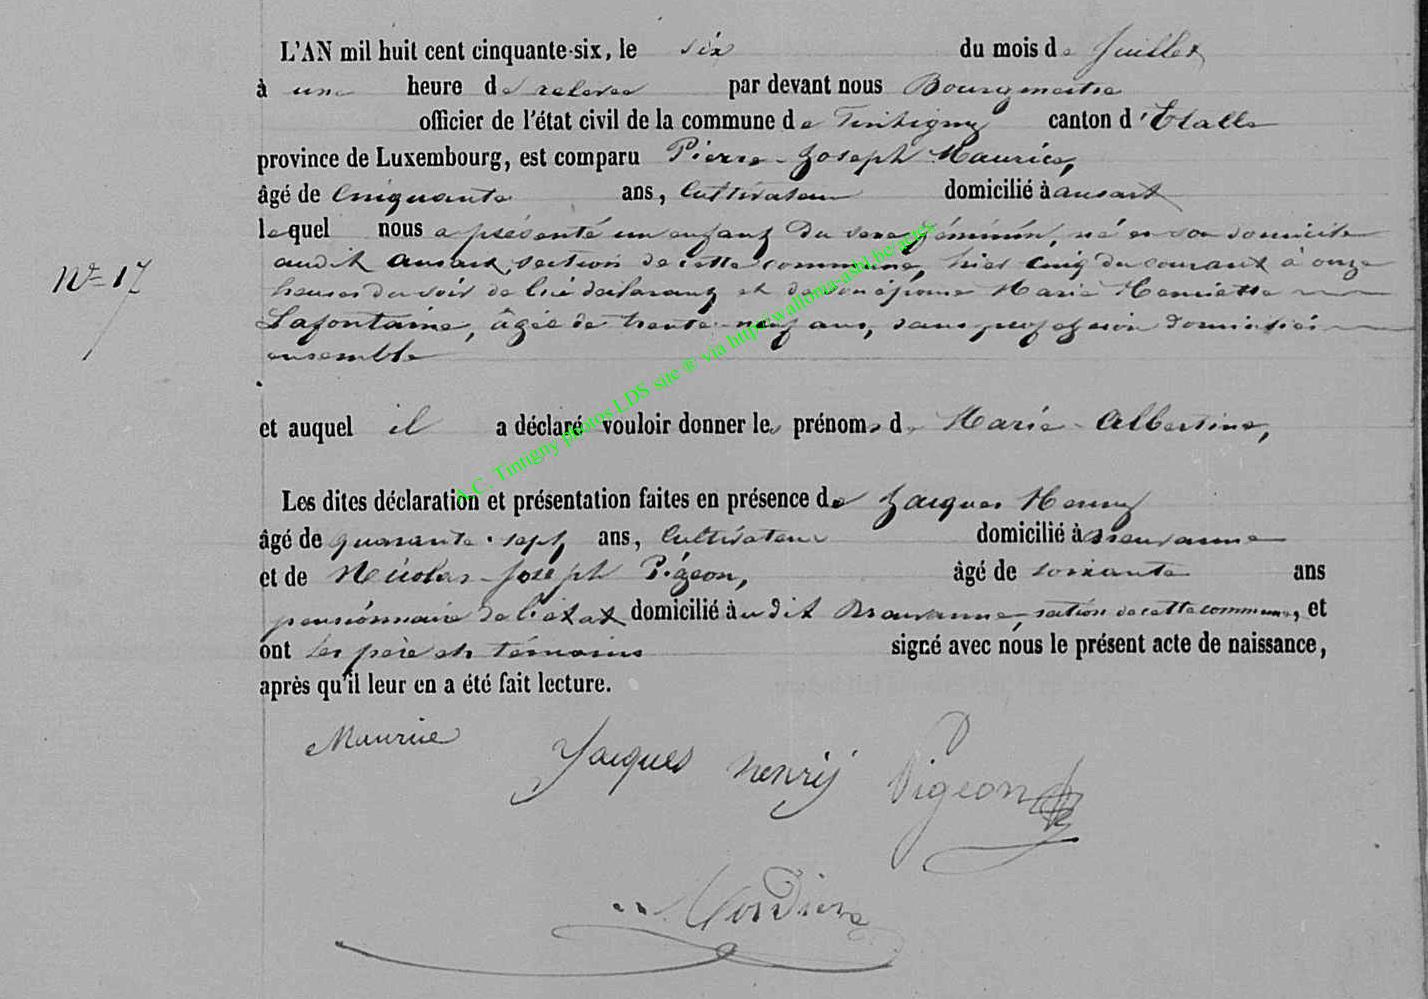 L'AN mil huit cent cinquante-six, le six du mois de Juillet
à une heure de relevée par devant nous Bourgmestre
officier de l'état civil de la commune de Tintigny canton d'Etalle
province de Luxembourg, est comparu Pierre-Joseph Maurice,
âgé de Cinquante ans, Cultivateur domicilié à ansart
lequel nous a présenté un enfant du sexe féminin, né en son domicile
audit ansart, section de cette commune, hier cinq du courant à onze
heures du soir de lui déclarant et de son épouse Marie Henriette
Lafontaine, âgée de trente-neuf ans, sans profession domiciliés
ensemble
N° 17
et auquel il a déclaré vouloir donner les prénoms de Marie-Albertine,
Les dites déclaration et présentation faites en présence de Jacques Henry
âgé de quarante-sept ans, Cultivateur domicilié à
et de Nicolas-Joseph Pigeon, âgé de soixante ans
pensionnaire de l'état domicilié àudit section de cette commune, et
ont les père et témoins signé avec nous le présent acte de naissance,
après qu'il leur en a été fait lecture.
Maurice Jacques henrÿ Pigeon
A.C. Tintigny photos LDS site ® via http://wallonia-asbl.be/actes